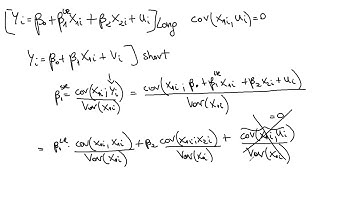 [Yi = β0 + β1^le X1i + β2 X2i + ui] Long cov(X1i, ui) = 0
Yi = β0 + β1 X1i + Vi ] short
β1^se = cov(X1i, Yi) / Var(X1i) = cov(X1i, β0 + β1^le X1i + β2 X2i + ui) / Var(X1i)
= β1^le · cov(X1i, X1i) / Var(X1i) + β2 cov(X1i, X2i) / Var(X1i) + cov(X1i, ui) / Var(X1i) = 0